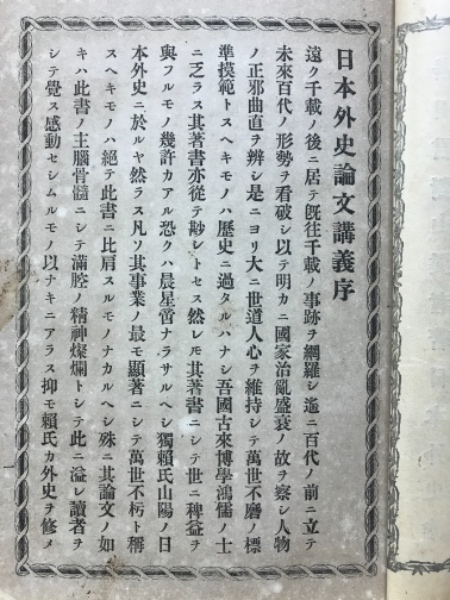 日本外史論文講義序
遠ク千載ノ後ニ居テ既往千載ノ事跡ヲ網羅シ遙ニ百代ノ前ニ立テ
未來百代ノ形勢ヲ看破シ以テ明カニ國家治亂盛衰ノ故ヲ察シ人物
ノ正邪曲直ヲ辨シ是ニヨリ大ニ世道人心ヲ維持シテ萬世不磨ノ標
準摸範トスヘキモノハ歷史ニ過タルハナシ吾國古來博學鴻儒ノ士
ニ乏ラス其著書亦從テ尠シトセス然レ𪜈其著書ニシテ世ニ稗益ヲ
與フルモノ幾許カアル恐クハ晨星啻ナラサルヘシ獨賴氏山陽ノ日
本外史ニ於ルヤ然ラス凡ソ其事業ノ最モ顯著ニシテ萬世不朽ト稱
スヘキモノハ絕テ此書ニ比肩スルモノナカルヘシ殊ニ其論文ノ如
キハ此書ノ主腦骨髓ニシテ滿腔ノ精神燦爛トシテ此ニ溢レ讀者ヲ
シテ覺ス感動セシムルモノ以ナキニアラス抑モ賴氏カ外史ヲ修メ